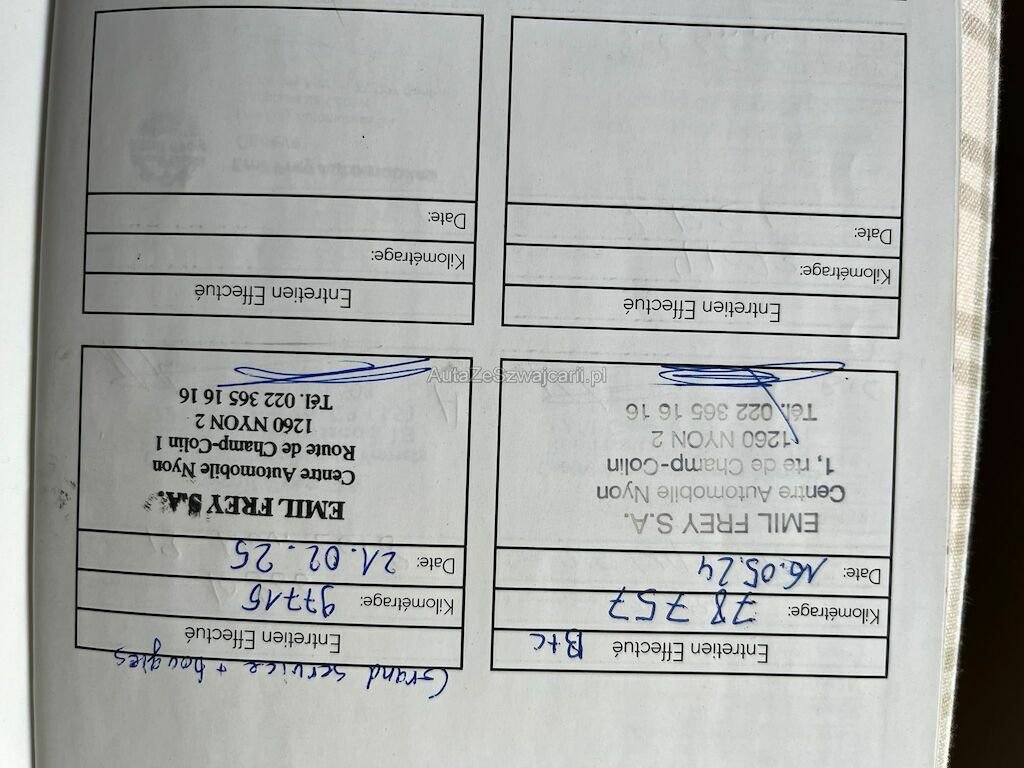 Entretien Effectué B+C
Kilométrage: 78 757
Date: 16.05.24
EMIL FREY S.A.
Centre Automobile Nyon
1, rte de Champ-Colin
1260 NYON 2
Tél. 022 365 16 16
Grand service + bougies
Entretien Effectué
Kilométrage: 97715
Date: 21.02.25
EMIL FREY S.A.
Centre Automobile Nyon
Route de Champ-Colin 1
1260 NYON 2
Tél. 022 365 16 16
Entretien Effectué
Kilométrage:
Date:
Entretien Effectué
Kilométrage:
Date:
AutaZeSzwajcarii.pl